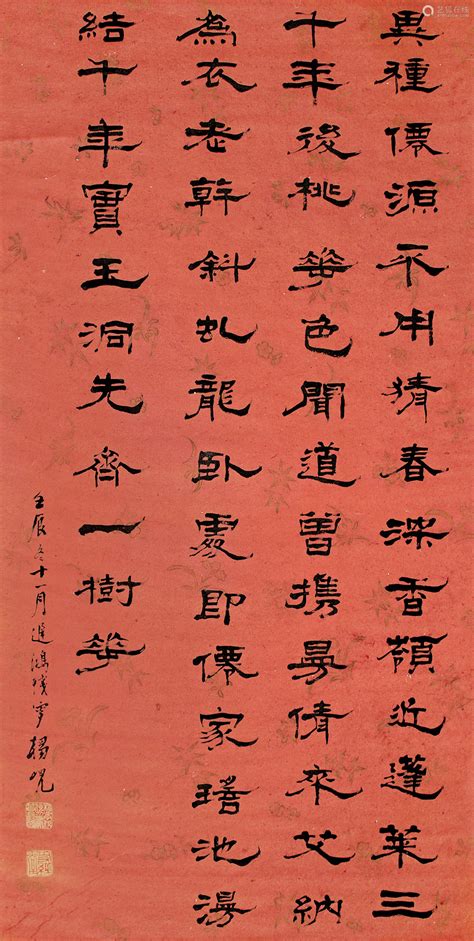 異種僊源不用猜春深香近蓬萊三
千年後桃花色聞道曾携曼倩來艾納
為衣老幹斜虬龍臥處即僊家瑤池漫
結千年實玉洞先齊一樹花
壬辰冬十一月鴻雪楊
艺狐在线